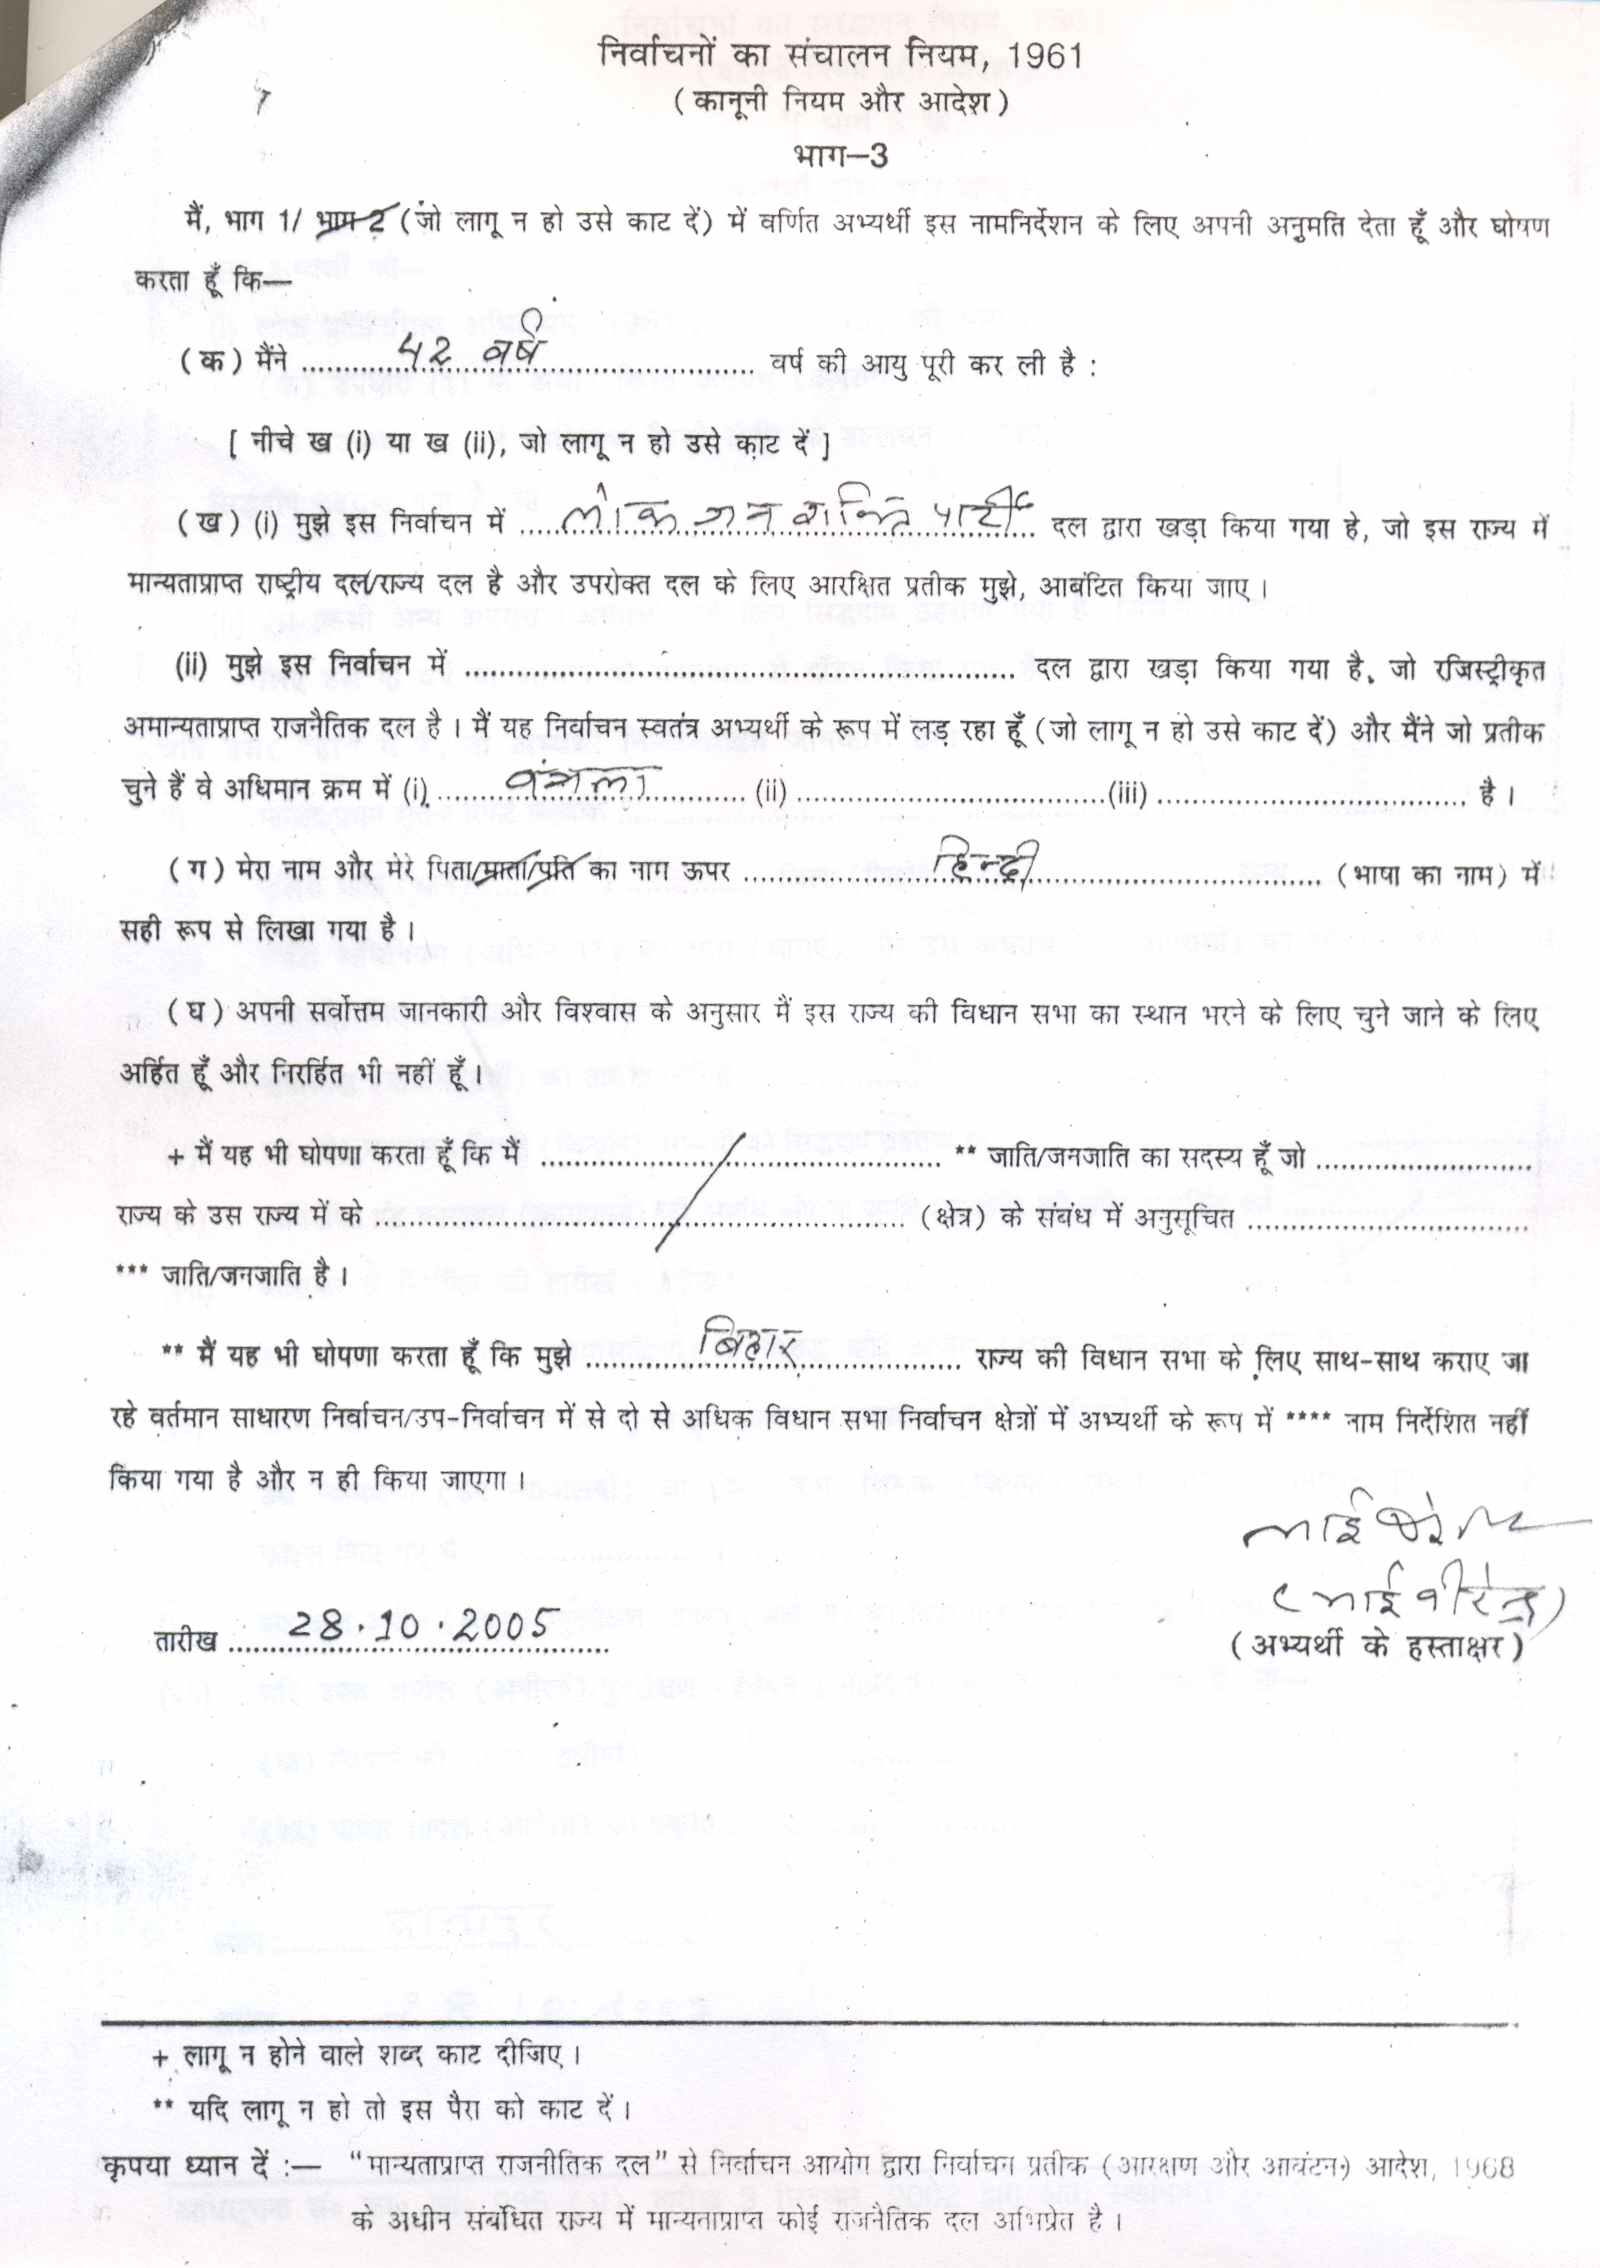 निर्वाचनों का संचालन नियम, 1961
(कानूनी नियम और आदेश)
भाग—3
मैं, भाग 1/ भाग 2 (जो लागू न हो उसे काट दें) में वर्णित अभ्यर्थी इस नामनिर्देशन के लिए अपनी अनुमति देता हूँ और घोषण
करता हूँ कि—
(क) मैंने 42 वर्ष वर्ष की आयु पूरी कर ली है :
[ नीचे ख (i) या ख (ii), जो लागू न हो उसे काट दें ]
(ख) (i) मुझे इस निर्वाचन में लोक जन शक्ति पार्टी दल द्वारा खड़ा किया गया हे, जो इस राज्य में
मान्यताप्राप्त राष्ट्रीय दल/राज्य दल है और उपरोक्त दल के लिए आरक्षित प्रतीक मुझे, आबंटित किया जाए।
(ii) मुझे इस निर्वाचन में .......... दल द्वारा खड़ा किया गया है, जो रजिस्ट्रीकृत
अमान्यताप्राप्त राजनैतिक दल है। मैं यह निर्वाचन स्वतंत्र अभ्यर्थी के रूप में लड़ रहा हूँ (जो लागू न हो उसे काट दें) और मैंने जो प्रतीक
चुने हैं वे अधिमान क्रम में (i) बंगला (ii) .......... (iii) .......... है।
(ग) मेरा नाम और मेरे पिता/माता/पति का नाम ऊपर हिन्दी (भाषा का नाम) में
सही रूप से लिखा गया है।
(घ) अपनी सर्वोत्तम जानकारी और विश्वास के अनुसार मैं इस राज्य की विधान सभा का स्थान भरने के लिए चुने जाने के लिए
अर्हित हूँ और निरर्हित भी नहीं हूँ।
+ मैं यह भी घोषणा करता हूँ कि मैं .......... ** जाति/जनजाति का सदस्य हूँ जो ..........
राज्य के उस राज्य में के .......... (क्षेत्र) के संबंध में अनुसूचित ..........
*** जाति/जनजाति है।
** मैं यह भी घोषणा करता हूँ कि मुझे बिहार राज्य की विधान सभा के लिए साथ-साथ कराए जा
रहे वर्तमान साधारण निर्वाचन/उप-निर्वाचन में से दो से अधिक विधान सभा निर्वाचन क्षेत्रों में अभ्यर्थी के रूप में **** नाम निर्देशित नहीं
किया गया है और न ही किया जाएगा।
(भाई वीरेन्द्र)
तारीख 28.10.2005
(अभ्यर्थी के हस्ताक्षर)
+ लागू न होने वाले शब्द काट दीजिए।
** यदि लागू न हो तो इस पैरा को काट दें।
कृपया ध्यान दें :— “मान्यताप्राप्त राजनीतिक दल” से निर्वाचन आयोग द्वारा निर्वाचन प्रतीक (आरक्षण और आवंटन) आदेश, 1968
के अधीन संबंधित राज्य में मान्यताप्राप्त कोई राजनैतिक दल अभिप्रेत है।